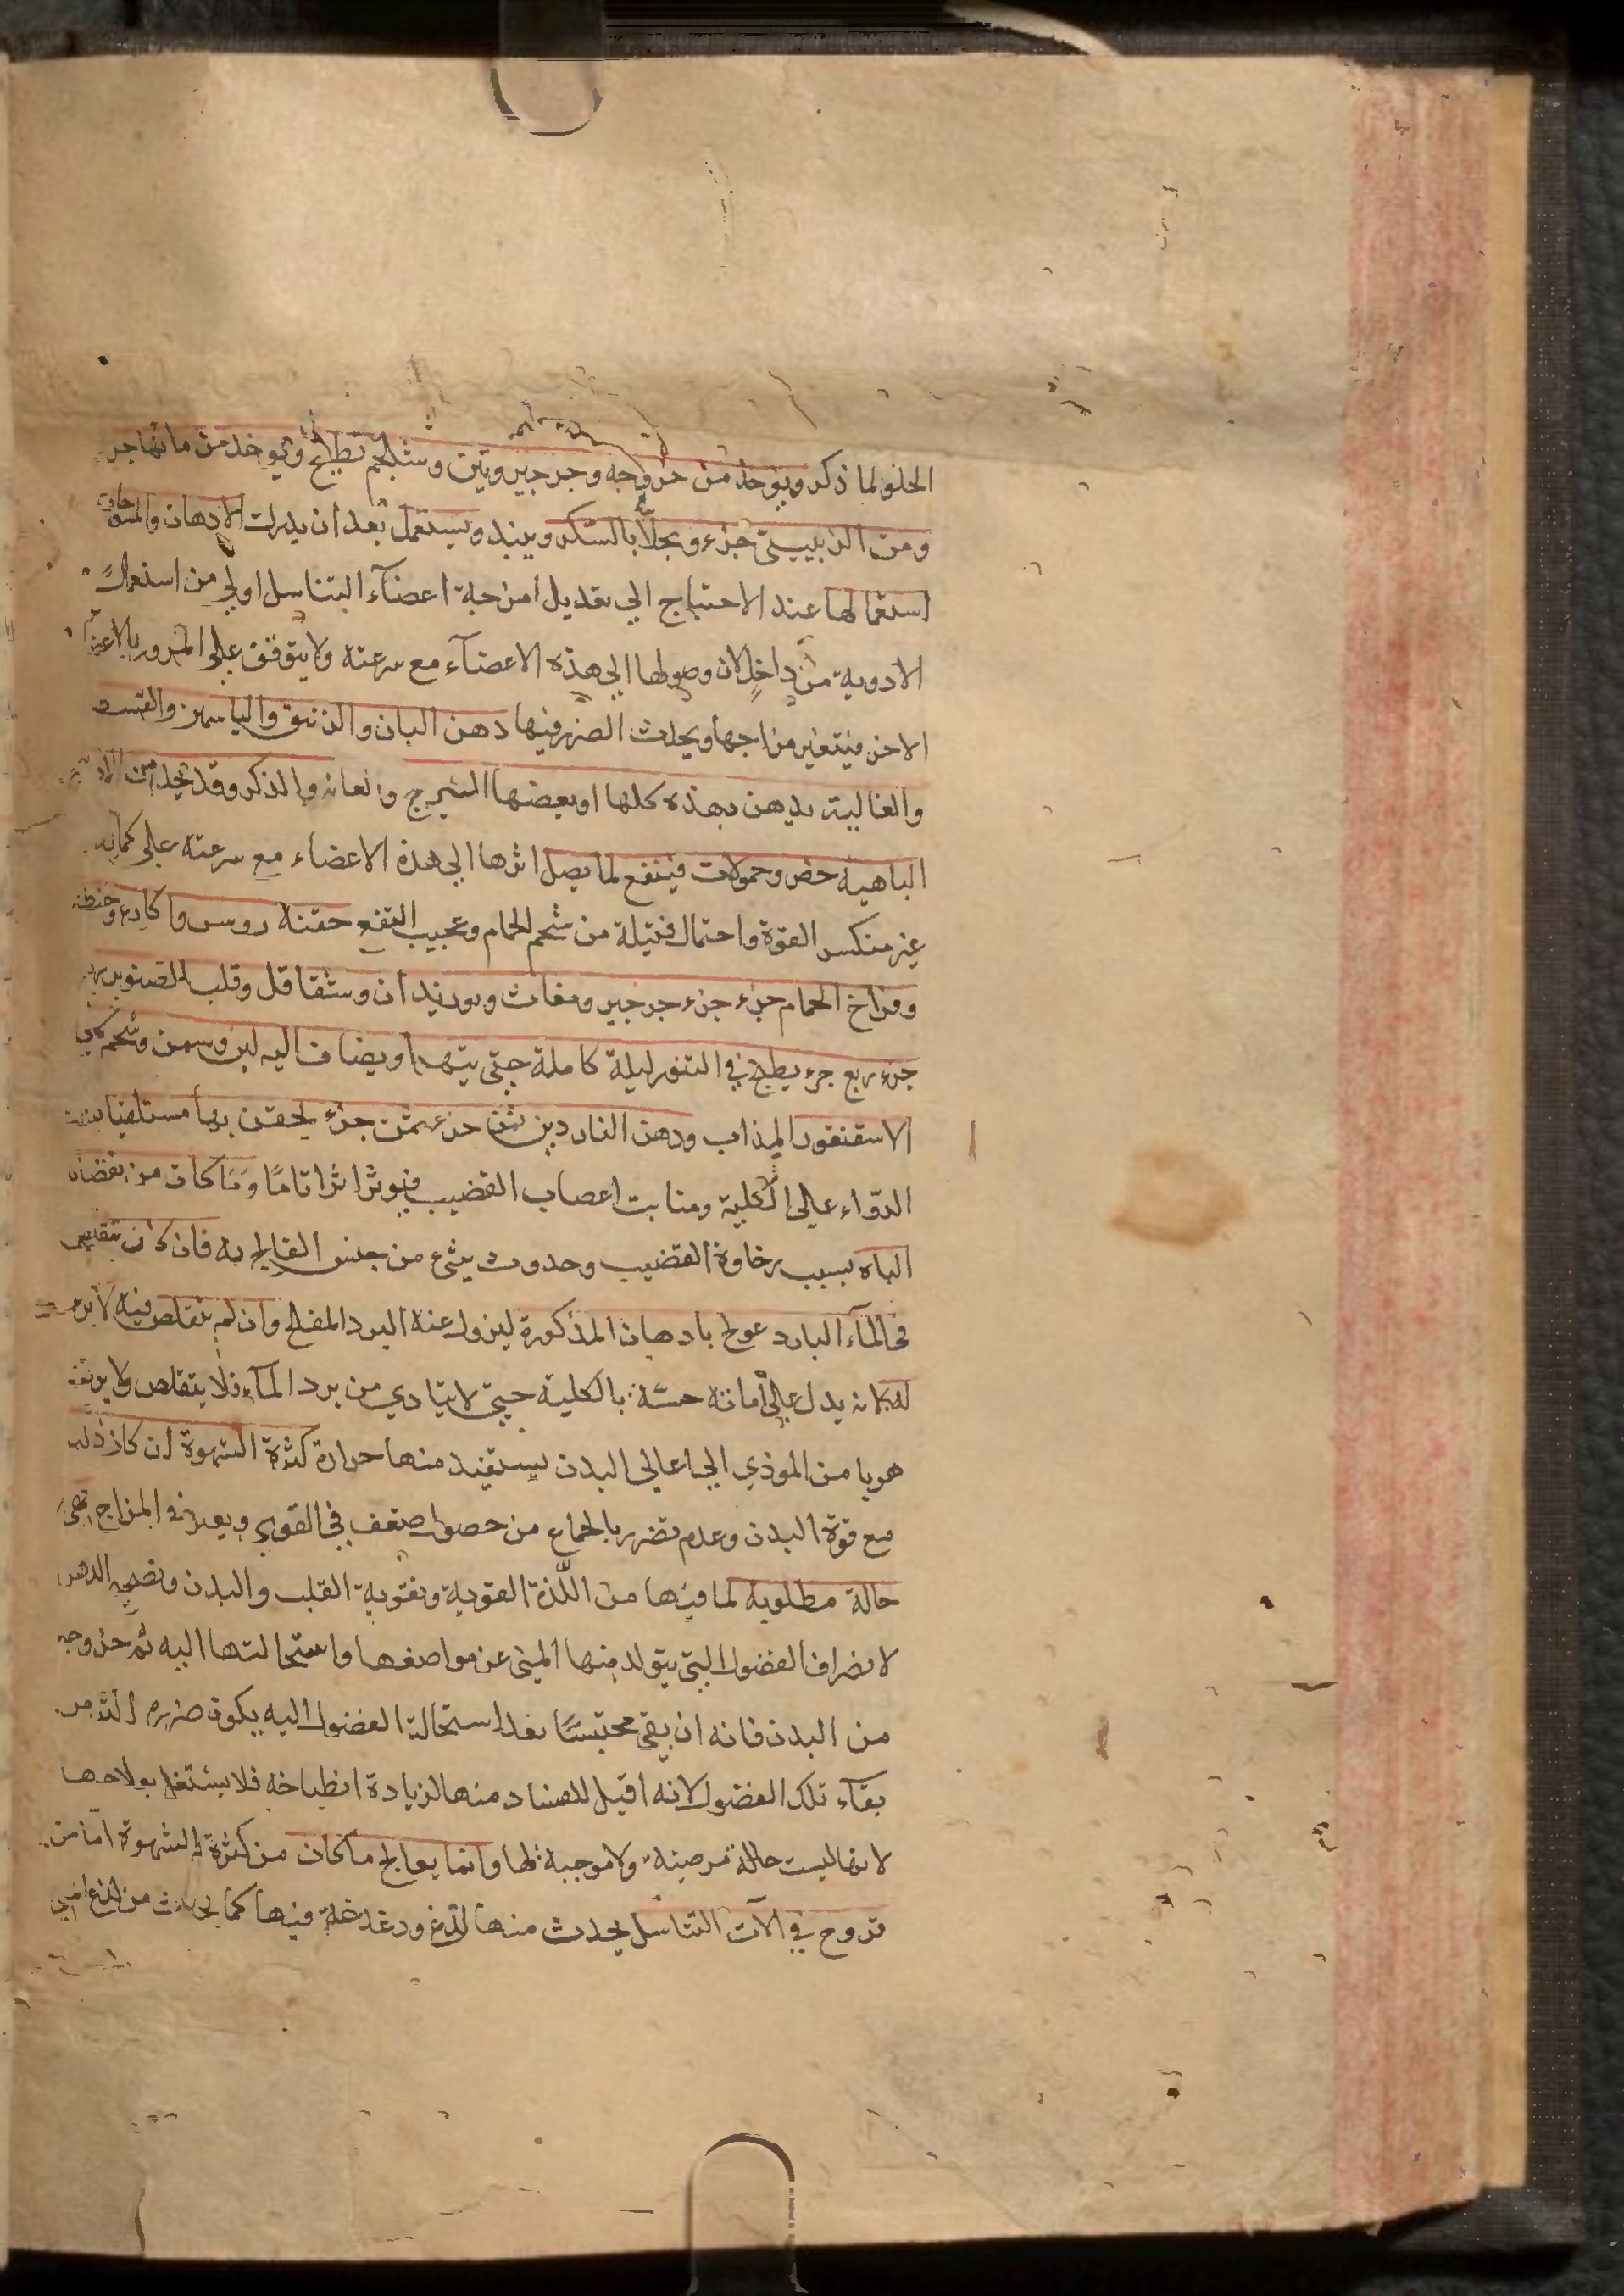 الحلو لما ذكر ويؤخذ من جزر وجه وجرجير وتين وشلجم يطبخ ويوخذ من مائها جزء
ومن الزبيب جزء ويحلا بالسكر وينبذ ويستعمل بعد ان يدرك الادهان والمسوحات
استعمالها عند الاحتياج الى تعديل امزجة اعضآء التناسل اولى من استعمال
الادوية من داخل لان وصولها الى هذه الاعضآء مع سرعة ولا يتوقف على المرور بالاعضآء
الاخر فيتغير مزاجها ويحدث الضرر فيها دهن البان والزنبق والياسمين والقسط
والغالية يدهن بهذه كلها او بعضها الشرج والعانة والذكر وقد يتخذ من الادوية
الباهية حقن وحمولات فينفع لما يصل اثرها الى هذه الاعضاء مع سرعة على كماله
غير منكسر القوة واحتمال فتيلة من شحم الحمام وعجيب النفع حقنة روس واكارع وحنطة
وفراخ الحمام جزء جزء جرجير ومغاث وبوزيدان وشقاقل وقلب الصنوبر
جزء ربع جزء يطبخ في التنور ليلة كاملة حتى يتهرا ويضاف اليه لبن وسمن وشحم كلى
الاسقنقور المذاب ودهن الناردين ثمن جزء ثمن جزء يحقن بها مستلقيا
الدواء على الكلية ومنابت اعصاب القضيب فيوثر اثرا تاما وما كان من نقصان
الباه بسبب رخاوة القضيب وحدوث شيء من جنس الفالج به فان كان يتقلص
في المآء البارد عولج بادهان المذكورة ليزول عنه البرد المفلج وان لم يتقلص فيه لا برء
له لانه يدل على امانة حسه بالكلية حتى لا يتادي من برد المآء فلا يتقلص ولا يرتفع
هربا من الموذي الى اعالى البدن ليستفيد منها حرارة كثرة الشهوة ان كان ذلك
مع قوة البدن وعدم تضرر بالجماع من حصول ضعف في القوى وتغير في المزاج فهي
حالة مطلوبة لما فيها من اللذة القوية وتقوية القلب والبدن وتصحيح الذهن
لانصراف الفضول التي يتولد منها المني عن مواضعها واستحالتها اليه ثم خروجه
من البدن فانه ان بقى محتبسا بعد استحالة الفضول اليه يكون ضرره اشد من
بقآء تلك الفضول لانه اقبل للفساد منها لزيادة انطباخه فلا يشتغل بعلاجها
لانها ليست حالة مرضية ولا موجبة لها وانما يعالج ما كان من كثرة الشهوة اما من
قروح في الآت التناسل يحدث منها لذع ودغدغة فيها كما يحدث من لذع